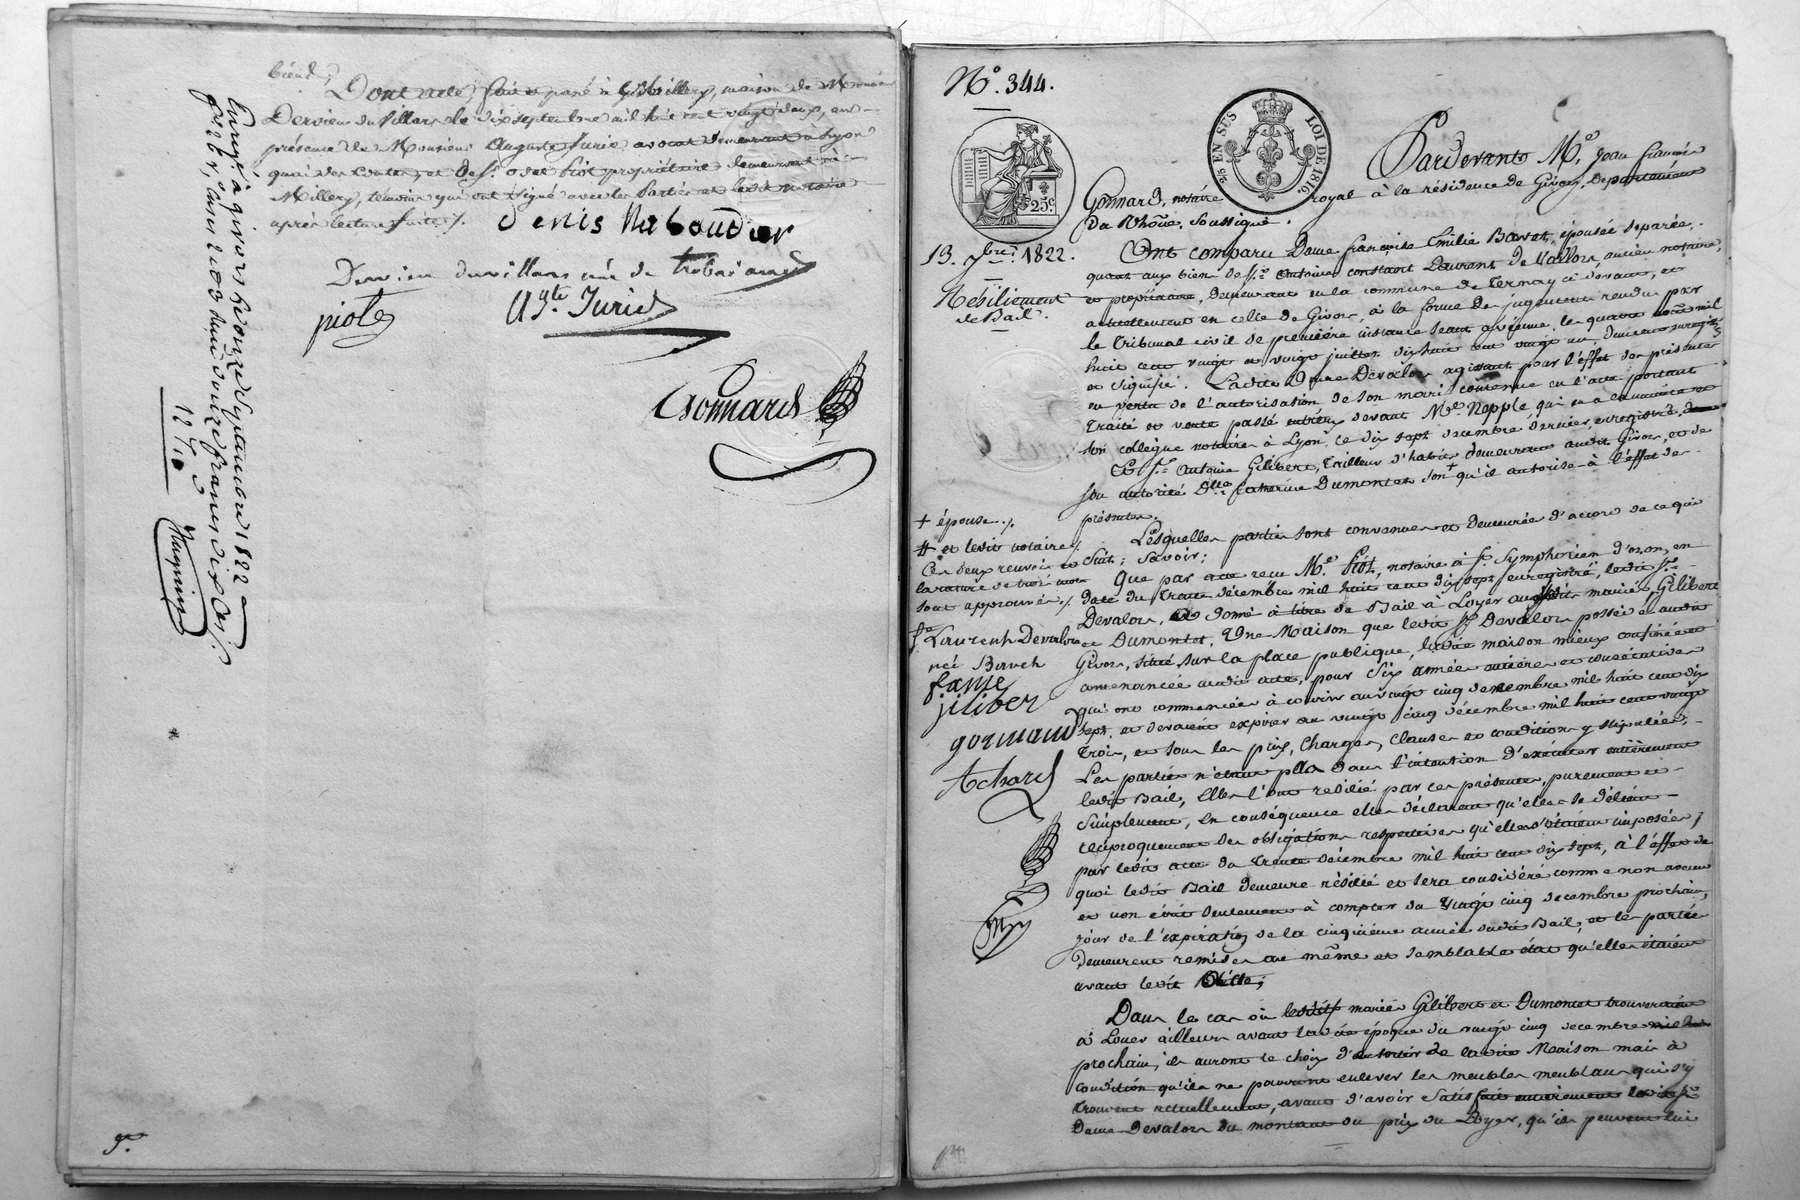 biens,
Dont acte, fait et passé à Millery, maison de Monsieur
Dervieu du Villars le dix septembre mil huit cent vingt deux, en
présence de Monsieur Auguste Jurie avocat demeurant à Lyon
quai des et de Sr. piot propriétaire demeurant à
Millery, témoins qui ont signé avec les Parties et ledit notaire
après lecture faite ./.
Denis Naboudier
Dervieu du villars née de
piot
Agte. Jurie
Gonnard
Enregé. à givors le onze Septembre 1822
fo. case Reçu douze francs dix Cts.
9.
No. 344.
25 EN SUS LOI DE 1816.
25c
Pardevant Me. Jean françois
Gonnard, notaire royal à la résidence de Givors, Département
Du Rhône, soussigné.
13. 7bre. 1822.
Résiliement
de Bail.
Ont comparu Dame françoise Emilie Barat, épouse séparée
quant aux biens de Sr. Antoine constant Laurent de Vallors, ancien notaire,
et propriétaire, demeurant en la commune de Ternay ci devant, et
actuellement en celle de Givors, à la forme des jugements rendus par
le Tribunal civil de première instance séant à vienne, les quatre mil
huit cent vingt et vingt juillet dix huit cent vingt un, dûment enregistrés
et signifié. Ladite Dame Devalors agissant pour l'effet des présentes
en vertu de l'autorisation de son mari contenue en l'acte portant
Traité et vente passé entr'eux devant Me. Nepple, qui en a la minute et
son collègue notaires à Lyon, le dix sept décembre dernier, enregistré,
Et Sr. Antoine Gilibert, Tailleur d'habits demeurant audit Givors, et de
son autorité Dlle. Catherine Dumontet son + qu'il autorise à l'effet des
présentes.
Lesquelles parties sont convenues et demeurées d'accord de ce qui
suit; savoir:
+ épouse ./.
# et ledit notaire ./.
Ces deux renvois et
la rature de trois mots
sont approuvés ./.
Que par acte reçu Me. Piot, notaire à St. Symphorien d'ozon, en
date du trente décembre mil huit cent dix sept, enregistré, ledit Sr.
Devalors, a donné à titre de Bail à Loyer auxdits mariés Gilibert
et Dumontet, Une Maison que ledit Sr. Devalors possède audit
Givors, située sur la place publique, ladite maison mieux confinée et
contenancée audit acte, pour Six années entières et consécutives
qui ont commencées à courir au vingt cinq décembre mil huit cent dix
sept, et devaient expirer au vingt cinq décembre mil huit cent vingt
Trois, et sous les prix, Charges, Clauses et conditions y stipulées.
Fe. Laurent Devalors
née Barat
fanie
jiliber
gormand
Achard
Les parties n'étant plus dans l'intention d'exécuter entièrement
ledit Bail, Elles l'ont résilié par ces présentes, purement et
simplement, en conséquence elles déclarent qu'elles se délient
réciproquement des obligations respectives qu'elles s'étaient imposées
par ledit acte du trente décembre mil huit cent dix sept, à l'effet de
quoi ledit Bail demeure résilié et sera considéré comme non avenu
et non écrit seulement à compter du vingt cinq décembre prochain,
jour de l'expiration de la cinquième année dudit Bail, et les parties
demeurent remises au même et semblable état qu'elles étaient
avant ledit
Dans le cas où lesdits mariés Gilibert et Dumontet trouveraient
à Louer ailleurs avant ladite époque du vingt cinq décembre
prochain, ils auront le choix de sortir de ladite Maison mais à
condition qu'ils ne pourront enlever les meubles meublans qui s'y
trouvent actuellement, avant d'avoir satisfait entièrement ladite
Dame Devalors du montant du prix du Loyer, qu'ils peuvent lui